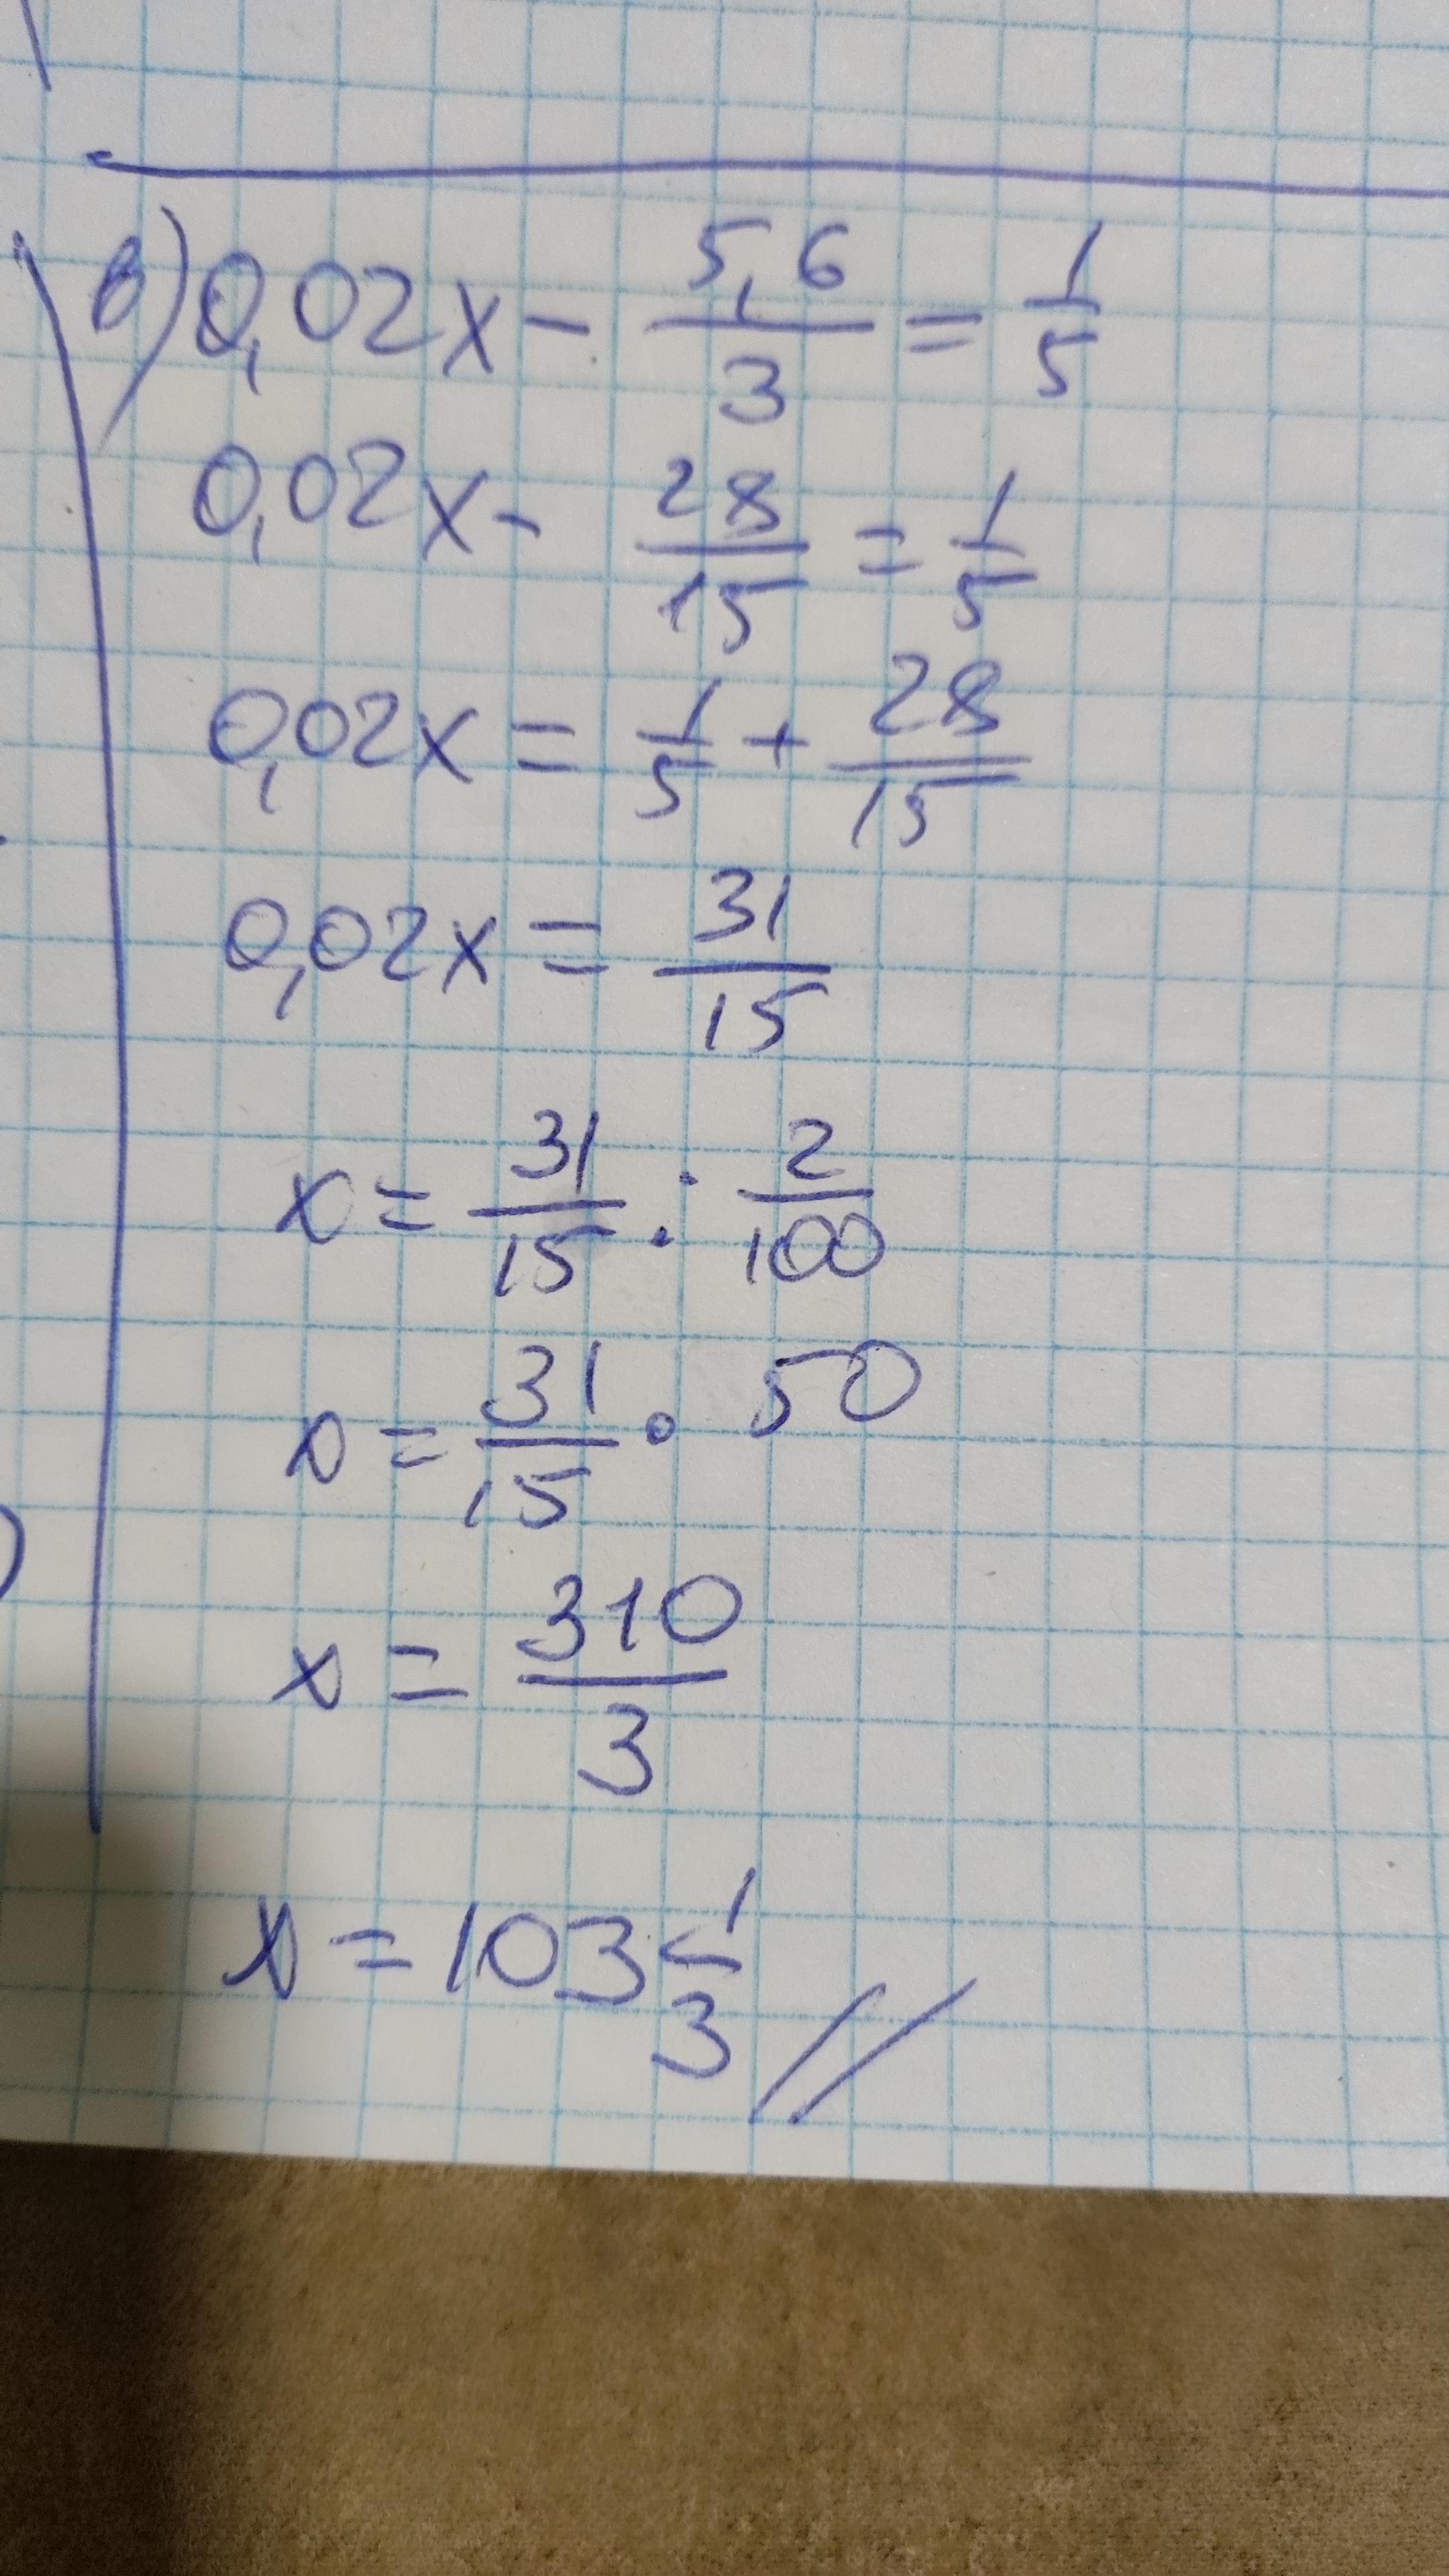 в) 0,02x - 5,6/3 = 1/5
0,02x - 28/15 = 1/5
0,02x = 1/5 + 28/15
0,02x = 31/15
x = 31/15 : 2/100
x = 31/15 · 50
x = 310/3
x = 103 1/3 //